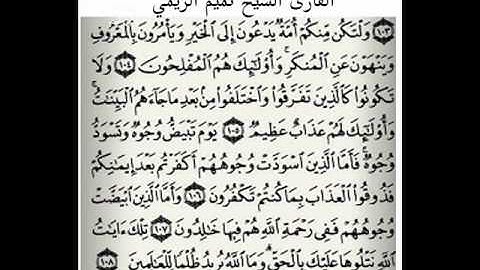 القارئ الشيخ تميم الريمي
١٠٣ وَلْتَكُن مِّنكُمْ أُمَّةٌ يَدْعُونَ إِلَى الْخَيْرِ وَيَأْمُرُونَ بِالْمَعْرُوفِ
وَيَنْهَوْنَ عَنِ الْمُنكَرِ ۚ وَأُولَٰئِكَ هُمُ الْمُفْلِحُونَ ١٠٤ وَلَا
تَكُونُوا كَالَّذِينَ تَفَرَّقُوا وَاخْتَلَفُوا مِن بَعْدِ مَا جَاءَهُمُ الْبَيِّنَاتُ ۚ
وَأُولَٰئِكَ لَهُمْ عَذَابٌ عَظِيمٌ ١٠٥ يَوْمَ تَبْيَضُّ وُجُوهٌ وَتَسْوَدُّ
وُجُوهٌ ۚ فَأَمَّا الَّذِينَ اسْوَدَّتْ وُجُوهُهُمْ أَكَفَرْتُم بَعْدَ إِيمَانِكُمْ
فَذُوقُوا الْعَذَابَ بِمَا كُنتُمْ تَكْفُرُونَ ١٠٦ وَأَمَّا الَّذِينَ ابْيَضَّتْ
وُجُوهُهُمْ فَفِي رَحْمَةِ اللَّهِ هُمْ فِيهَا خَالِدُونَ ١٠٧ تِلْكَ آيَاتُ
اللَّهِ نَتْلُوهَا عَلَيْكَ بِالْحَقِّ ۗ وَمَا اللَّهُ يُرِيدُ ظُلْمًا لِّلْعَالَمِينَ ١٠٨